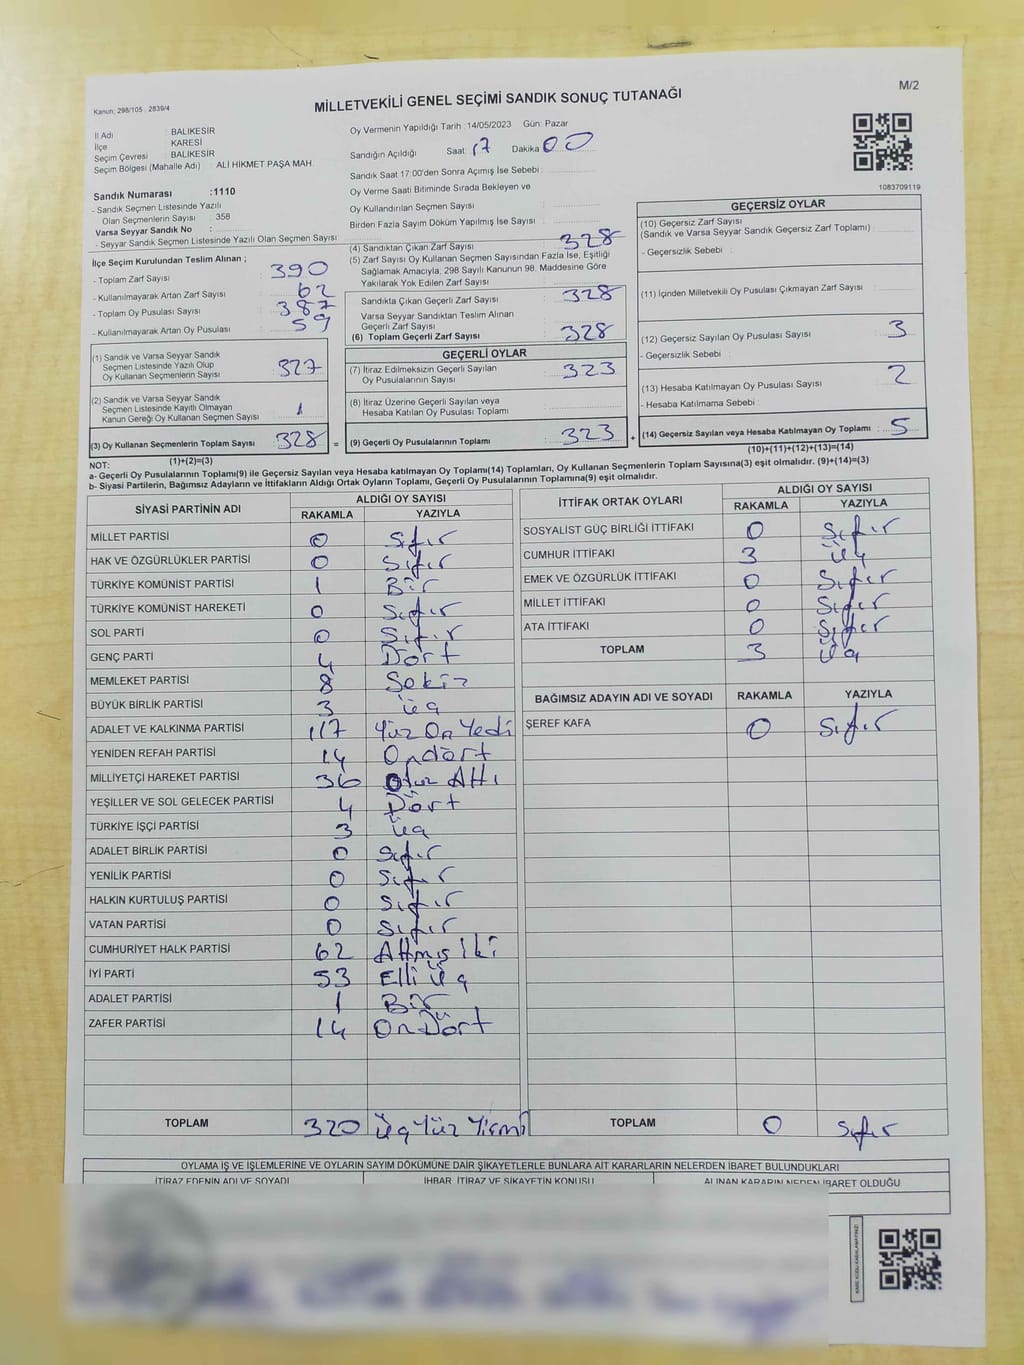 M/2
Kanun: 298/105 . 2839/4
MİLLETVEKİLİ GENEL SEÇİMİ SANDIK SONUÇ TUTANAĞI
İl Adı : BALIKESİR
İlçe : KARESİ
Seçim Çevresi : BALIKESİR
Seçim Bölgesi (Mahalle Adı) : ALİ HİKMET PAŞA MAH.
Sandık Numarası :1110
- Sandık Seçmen Listesinde Yazılı
Olan Seçmenlerin Sayısı : 358
Varsa Seyyar Sandık No :
- Seyyar Sandık Seçmen Listesinde Yazılı Olan Seçmen Sayısı :
Oy Vermenin Yapıldığı Tarih : 14/05/2023 Gün: Pazar
Sandığın Açıldığı Saat 17 Dakika 00
Sandık Saat 17:00'den Sonra Açımış İse Sebebi :
Oy Verme Saati Bitiminde Sırada Bekleyen ve
Oy Kullandırılan Seçmen Sayısı :
Birden Fazla Sayım Döküm Yapılmış İse Sayısı :
1083709119
İlçe Seçim Kurulundan Teslim Alınan ;
- Toplam Zarf Sayısı : 390
- Kullanılmayarak Artan Zarf Sayısı : 62
- Toplam Oy Pusulası Sayısı : 387
- Kullanılmayarak Artan Oy Pusulası : 59
(1) Sandık ve Varsa Seyyar Sandık
Seçmen Listesinde Yazılı Olup
Oy Kullanan Seçmenlerin Sayısı : 327
(2) Sandık ve Varsa Seyyar Sandık
Seçmen Listesinde Kayıtlı Olmayan
Kanun Gereği Oy Kullanan Seçmen Sayısı : 1
(3) Oy Kullanan Seçmenlerin Toplam Sayısı : 328 =
(1)+(2)=(3)
(4) Sandıktan Çıkan Zarf Sayısı : 328
(5) Zarf Sayısı Oy Kullanan Seçmen Sayısından Fazla İse, Eşitliği
Sağlamak Amacıyla; 298 Sayılı Kanunun 98. Maddesine Göre
Yakılarak Yok Edilen Zarf Sayısı :
Sandıkta Çıkan Geçerli Zarf Sayısı : 328
Varsa Seyyar Sandıktan Teslim Alınan
Geçerli Zarf Sayısı :
(6) Toplam Geçerli Zarf Sayısı : 328
GEÇERLİ OYLAR
(7) İtiraz Edilmeksizin Geçerli Sayılan
Oy Pusulalarının Sayısı : 323
(8) İtiraz Üzerine Geçerli Sayılan veya
Hesaba Katılan Oy Pusulası Toplamı :
(9) Geçerli Oy Pusulalarının Toplamı : 323 +
GEÇERSİZ OYLAR
(10) Geçersiz Zarf Sayısı
(Sandık ve Varsa Seyyar Sandık Geçersiz Zarf Toplamı) :
- Geçersizlik Sebebi :
(11) İçinden Milletvekili Oy Pusulası Çıkmayan Zarf Sayısı :
(12) Geçersiz Sayılan Oy Pusulası Sayısı : 3
- Geçersizlik Sebebi :
(13) Hesaba Katılmayan Oy Pusulası Sayısı : 2
- Hesaba Katılmama Sebebi :
(14) Geçersiz Sayılan veya Hesaba Katılmayan Oy Toplamı : 5
(10)+(11)+(12)+(13)=(14)
NOT:
a- Geçerli Oy Pusulalarının Toplamı(9) ile Geçersiz Sayılan veya Hesaba katılmayan Oy Toplamı(14) Toplamları, Oy Kullanan Seçmenlerin Toplam Sayısına(3) eşit olmalıdır. (9)+(14)=(3)
b- Siyasi Partilerin, Bağımsız Adayların ve İttifakların Aldığı Ortak Oyların Toplamı, Geçerli Oy Pusulalarının Toplamına(9) eşit olmalıdır.
SİYASİ PARTİNİN ADI ALDIĞI OY SAYISI
RAKAMLA YAZIYLA
MİLLET PARTİSİ 0 Sıfır
HAK VE ÖZGÜRLÜKLER PARTİSİ 0 Sıfır
TÜRKİYE KOMÜNİST PARTİSİ 1 Bir
TÜRKİYE KOMÜNİST HAREKETİ 0 Sıfır
SOL PARTİ 0 Sıfır
GENÇ PARTİ 4 Dört
MEMLEKET PARTİSİ 8 Sekiz
BÜYÜK BİRLİK PARTİSİ 3 Üç
ADALET VE KALKINMA PARTİSİ 117 Yüz On Yedi
YENİDEN REFAH PARTİSİ 14 Ondört
MİLLİYETÇİ HAREKET PARTİSİ 36 Otuz Altı
YEŞİLLER VE SOL GELECEK PARTİSİ 4 Dört
TÜRKİYE İŞÇİ PARTİSİ 3 Üç
ADALET BİRLİK PARTİSİ 0 Sıfır
YENİLİK PARTİSİ 0 Sıfır
HALKIN KURTULUŞ PARTİSİ 0 Sıfır
VATAN PARTİSİ 0 Sıfır
CUMHURİYET HALK PARTİSİ 62 Altmış İki
İYİ PARTİ 53 Elli Üç
ADALET PARTİSİ 1 Bir
ZAFER PARTİSİ 14 On Dört
TOPLAM 320 Üç Yüz Yirmi
İTTİFAK ORTAK OYLARI ALDIĞI OY SAYISI
RAKAMLA YAZIYLA
SOSYALİST GÜÇ BİRLİĞİ İTTİFAKI 0 Sıfır
CUMHUR İTTİFAKI 3 Üç
EMEK VE ÖZGÜRLÜK İTTİFAKI 0 Sıfır
MİLLET İTTİFAKI 0 Sıfır
ATA İTTİFAKI 0 Sıfır
TOPLAM 3 Üç
BAĞIMSIZ ADAYIN ADI VE SOYADI RAKAMLA YAZIYLA
ŞEREF KAFA 0 Sıfır
TOPLAM 0 Sıfır
OYLAMA İŞ VE İŞLEMLERİNE VE OYLARIN SAYIM DÖKÜMÜNE DAİR ŞİKAYETLERLE BUNLARA AİT KARARLARIN NELERDEN İBARET BULUNDUKLARI
İTİRAZ EDENİN ADI VE SOYADI İHBAR, İTİRAZ VE ŞİKAYETİN KONUSU ALINAN KARARIN NEDEN İBARET OLDUĞU